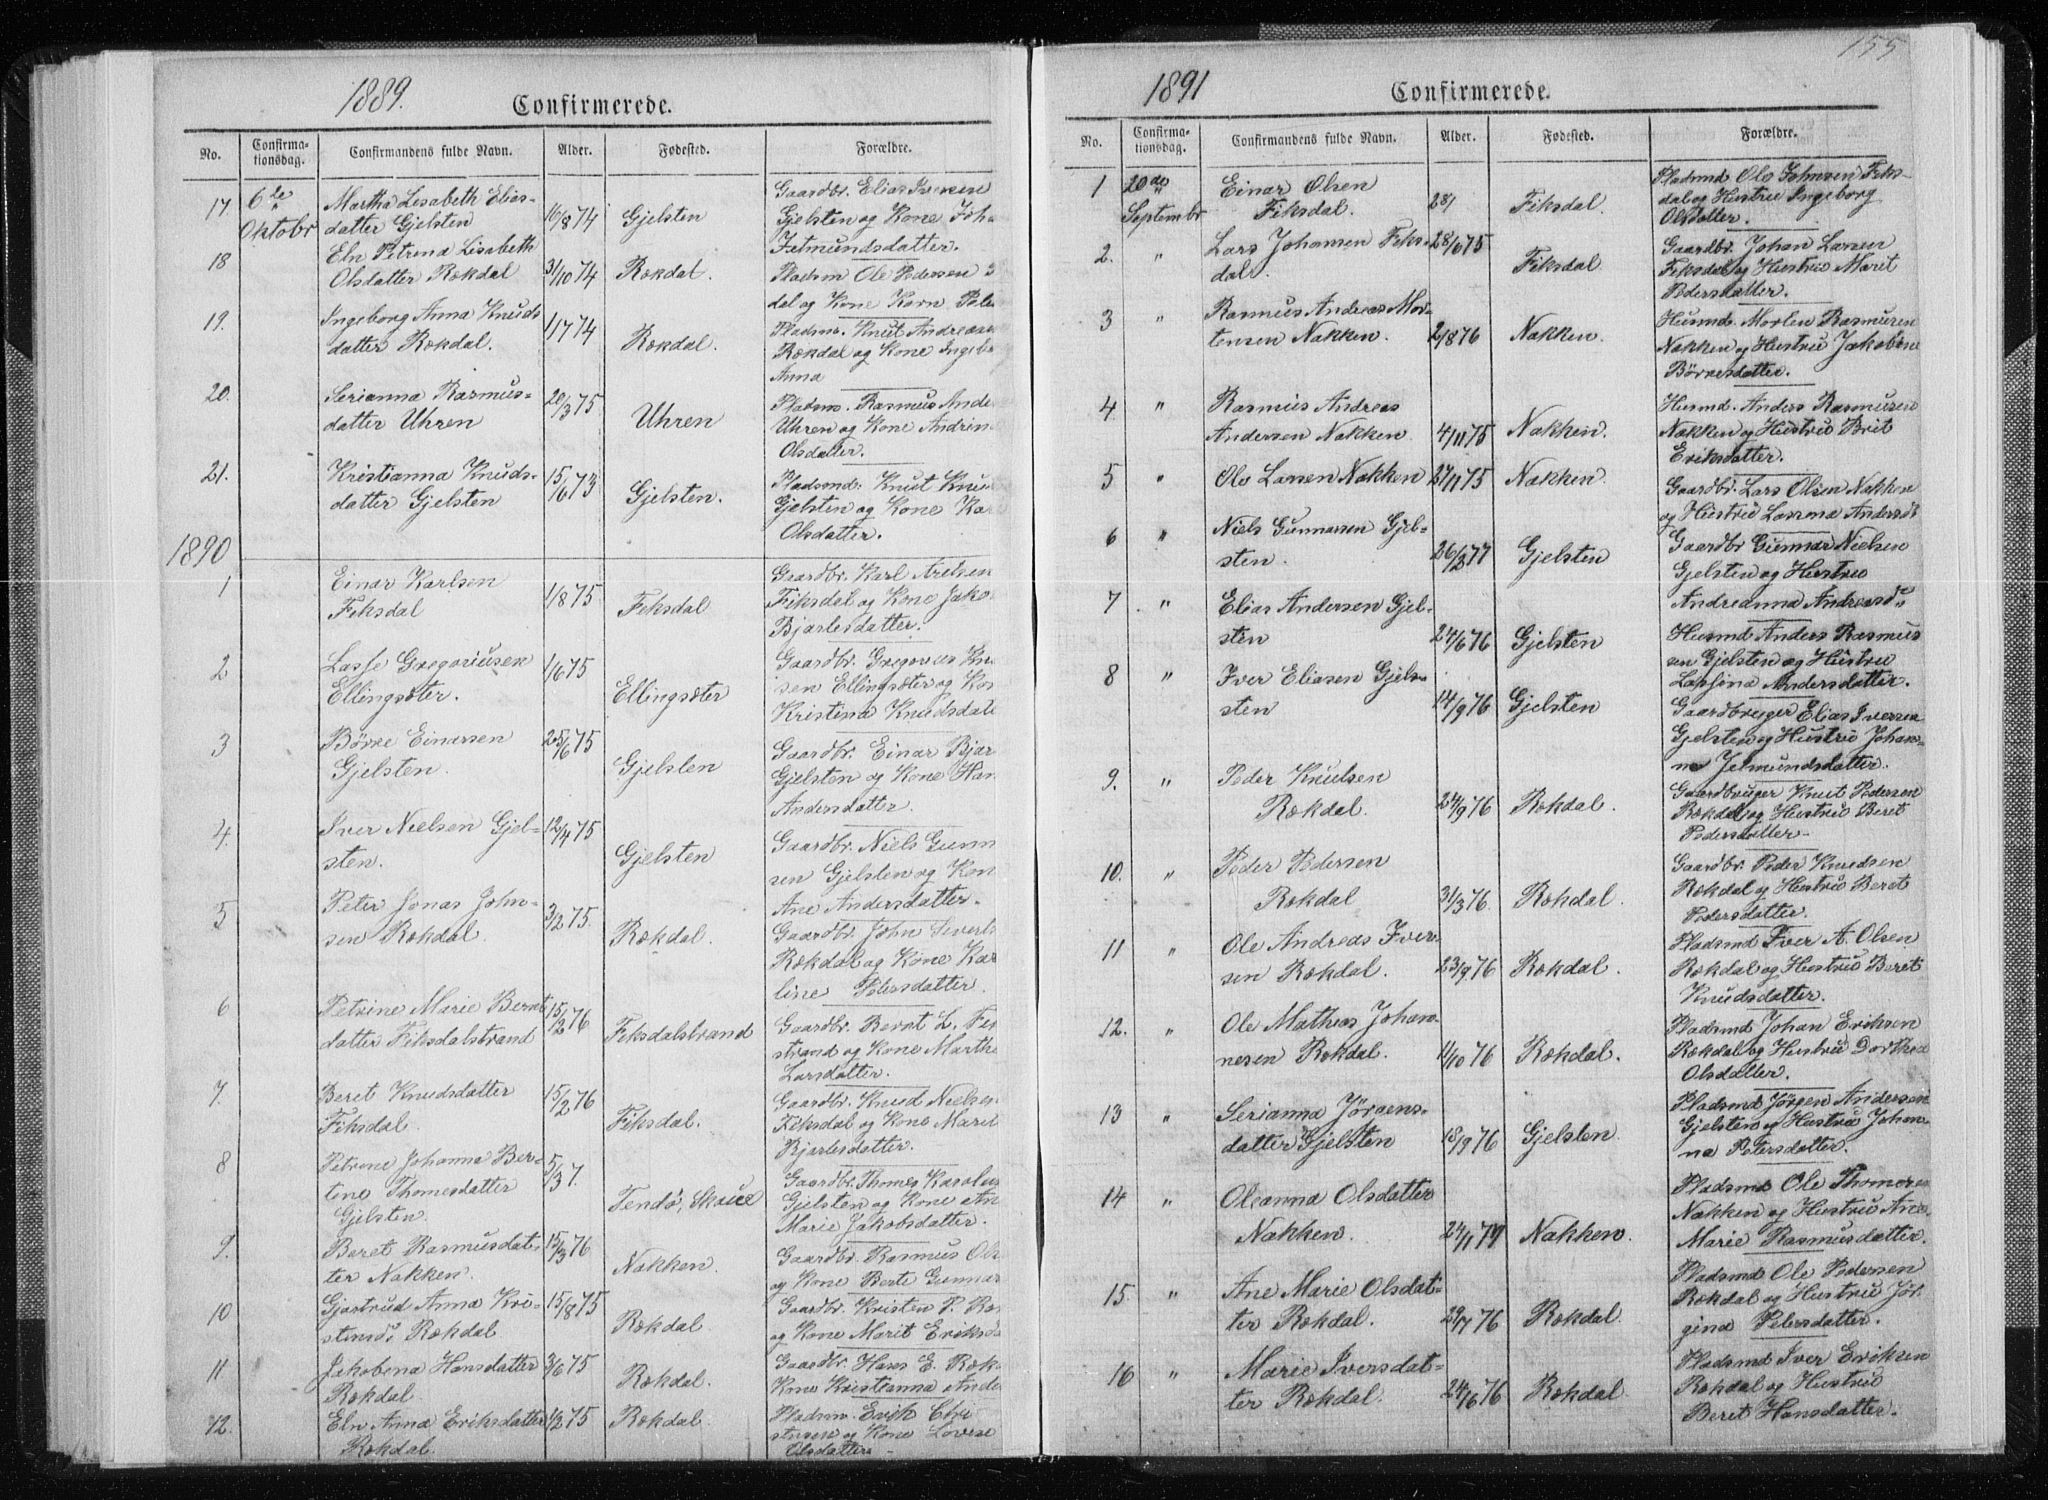 1889.
Confirmerede.
No.
Confirma-
tionsdag.
Confirmandens fulde Navn.
Alder.
Fødested.
Forældre.
17
6te
Oktobr
Martha Lisabeth Elias-
datter Gjelsten
16/8 74
Gjelsten
Gaardbr. Elias Iversen
Gjelsten og Kone Joha
Jetmundsdatter.
18
Eln Petrina Lisabeth
Olsdatter Rækdal
31/10 74
Rækdal.
Pladsm Ole Pedersen
dal og Kone Karn
19.
Ingeborg Anna Knuds
datter Rækdal.
1/1 74
Rækdal.
Pladsm. Knut Andreasen
Rækdal og Kone Ingebo
Anna
20.
Serianna Rasmus-
datter Uhren
20/3 75.
Uhren
Pladsm. Rasmus Ande
Uhren og Kone Andrin
Olsdatter.
21.
Kristianna Knuds-
datter Gjelsten
15/6 73
Gjelsten.
Pladsmd. Knut Knu
Gjelsten og Kone Ka
Olsdatter.
1890
1
Einar Karlsen
Fiksdal
1/8 75
Fiksdal
Gaardbr. Karl Axelsen
Fiksdal og Kone Jako
Bjarlesdatter.
2
Lasse Gregoriusen
Ellingsæter.
1/6 75
Ellingsæter
Gaardbr. Gregorius Knu
sen Ellingsæter og Kon
Kristina Knudsdatt
3
Børre Einarsen
Gjelsten.
25/6 75
Gjelsten
Gaardbr. Einar Bjar
Gjelsten og Kone Han
Andersdatter.
4.
Iver Nielsen Gjel-
sten.
12/4 75
Gjelsten
Gaardbr. Niels Gunn
sen Gjelsten og Kon
Ane Andersdatter.
5
Peter Jonas John-
sen Rækdal.
3/2 75.
Rækdal.
Gaardbr. John Siverts
Rækdal og Kone Kar
line Petersdatter.
6
Petrine Marie Bernt
datter Fiksdalstrand
15/2 76
Fiksdalstrand
Gaardbr. Bernt L. Fik
strand og Kone Marthe
Larsdatter.
7.
Beret Knudsdatter
Fiksdal.
15/2 76
Fiksdal.
Gaardbr. Knud Nielsen
Fiksdal og Kone Marit
Bjarlesdatter.
8
Petrine Johanna Ber-
tine Thomesdatter
Gjelsten.
5/3 7.
Tendø, Skoue
Gaardbr. Thomes Karolus
Gjelsten og Kone An
Marie Jakobsdatter.
9.
Beret Rasmusdat-
ter Nakken.
15/3 76
Nakken.
Gaardbr. Rasmus Ols
og Kone Berte Gunnar
10
Gjertrud Anna Kri-
stensd. Rækdal
15/8 75
Rækdal.
Gaardbr. Kristen P. Ræ
og Kone Marit Eriksda
11
Jakobina Hansdatter
Rækdal.
3/6 75
Rækdal.
Gaardbr. Hans E. Ræk
Kone Kristianna Ande
12.
Eln Anna Eriksdatter
Rækdal.
1/2 75
Rækdal.
Pladsm. Erik Chri
stensen og Kone Lovise
Olsdatter
155
1891
Confirmerede.
No.
Confirma-
tionsdag.
Confirmandens fulde Navn.
Alder.
Fødested.
Forældre.
1
20de
Septembr
Einar Olsen
Fiksdal.
28/
Fiksdal.
Pladsmd Ole Johnsen Fiks-
dal og Hustru Ingeborg
Olsdatter.
2.
"
Lars Johansen Fiks-
dal.
28/10 75
Fiksdal
Gaardbr. Johan Larsen
Fiksdal og Hustru Marit
Pedersdatter.
3
"
Rasmus Andreas Mor-
tensen Nakken.
2/8 76
Nakken.
Husmd. Morten Rasmusen
Nakken og Hustru Jakobine
Børresdatter.
4
"
Rasmus Andreas
Andersen Nakken
4/11 75
Nakken.
Husmd. Anders Rasmusen
Nakken og Hustru Brit
Eriksdatter.
5
"
Ole Larsen Nakken
27/11 75
Nakken.
Gaardbr. Lars Olsen Nakken
og Hustru Lassina Andersdt
6
"
Niels Gunnarsen Gjel-
sten.
26/2 77
Gjelsten
Gaardbr Gunnar Nielsen
Gjelsten og Hustru
Andreanna Andreasd.
7
"
Elias Andersen Gjel-
sten
24/6 76
Gjelsten
Husmd Anders Rasmus
sen Gjelsten og Hustru
Lassina Andersdatter.
8
"
Iver Eliasen Gjel-
sten
14/9 76
Gjelsten
Gaardbruger Elias Iversen
Gjelsten og Hustru Johan-
na Jetmundsdatter.
9.
"
Peder Knutsen
Rækdal.
24/9 76
Rækdal.
Gaardbruger Knut Pedersen
Rækdal og Hustru Beret
Pedersdatter
10.
"
Peder Pedersen
Rækdal
31/3 76.
Rækdal.
Gaardbr. Peder Knudsen
Rækdal og Hustru Beret
Pedersdatter.
11
"
Ole Andreas Iver-
sen Rækdal.
23/9 76
Rækdal.
Pladsmd Iver A. Olsen
Rækdal og Hustru Beret
Knudsdatter.
12.
"
Ole Mathias Johan-
nesen Rækdal.
11/10 76
Rækdal.
Pladsmd Johan Eriksen
Rækdal og Hustru Dorthea
Olsdatter.
13
"
Serianna Jørgens-
datter Gjelsten
18/9 76
Gjelsten.
Pladsmd Jørgen Andersen
Gjelsten og Hustru Johan-
na Petersdatter.
14
"
Oleanna Olsdatter
Nakken.
24/1 77
Nakken.
Pladsmd Ole Thomesen
Nakken og Hustru Ane
Marie Rasmusdatter.
15
"
Ane Marie Olsdat-
ter Rækdal.
29/7 76
Rækdal.
Pladsmd Ole Pedersen
Rækdal og Hustru Jør-
gina Petersdatter.
16
"
Marie Iversdat-
ter Rækdal.
24/6 76
Rækdal
Pladsmd Iver Eriksen
Rækdal og Hustru
Beret Hansdatter.